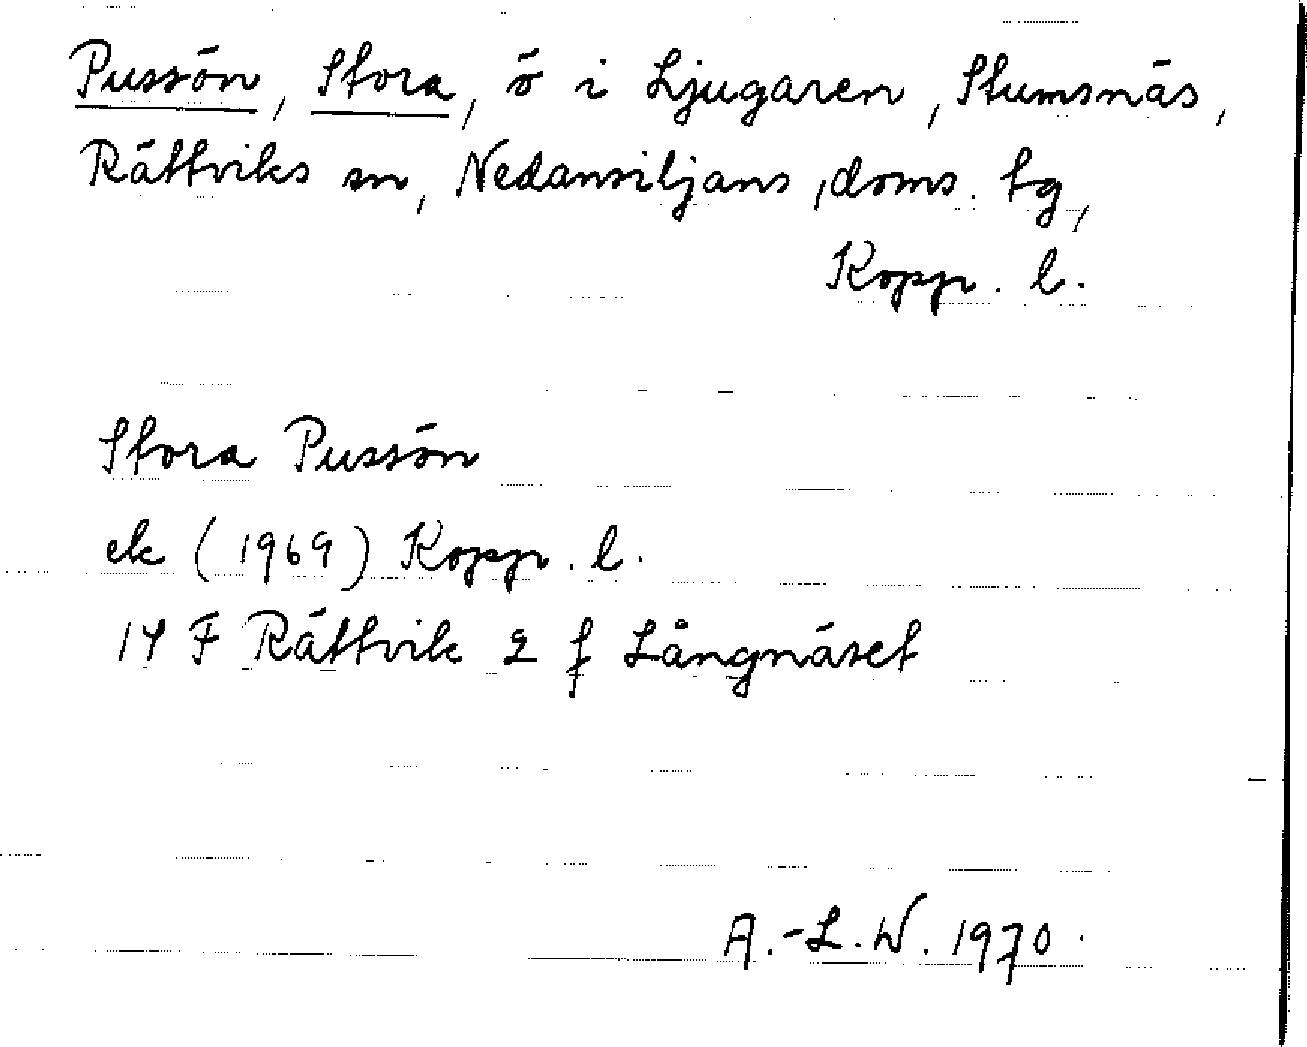 Pussön, Stora, ö i Ljugaren, Stumsnäs,
Rättviks sn, Nedansiljans, doms. tg,
Kopp. l.
Stora Pussön
ek (1969) Kopp. l.
14 F Rättvik 2 f Långnäset
A.-L.W. 1970.